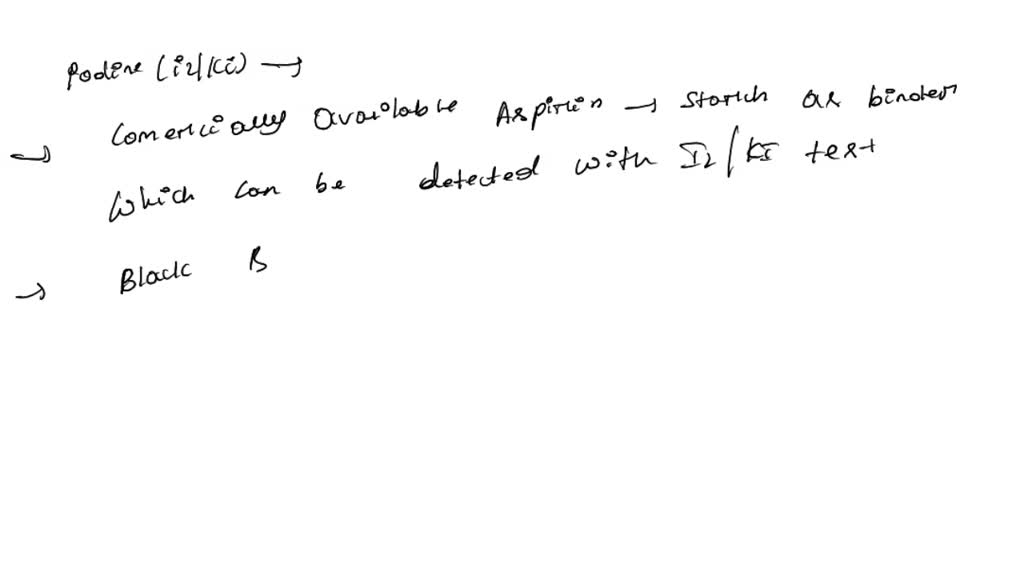 Iodine (i2/Ki) →
→ Comerically available Aspirin → Starch as binder
Which can be detected with I2/KI test
→ Black B